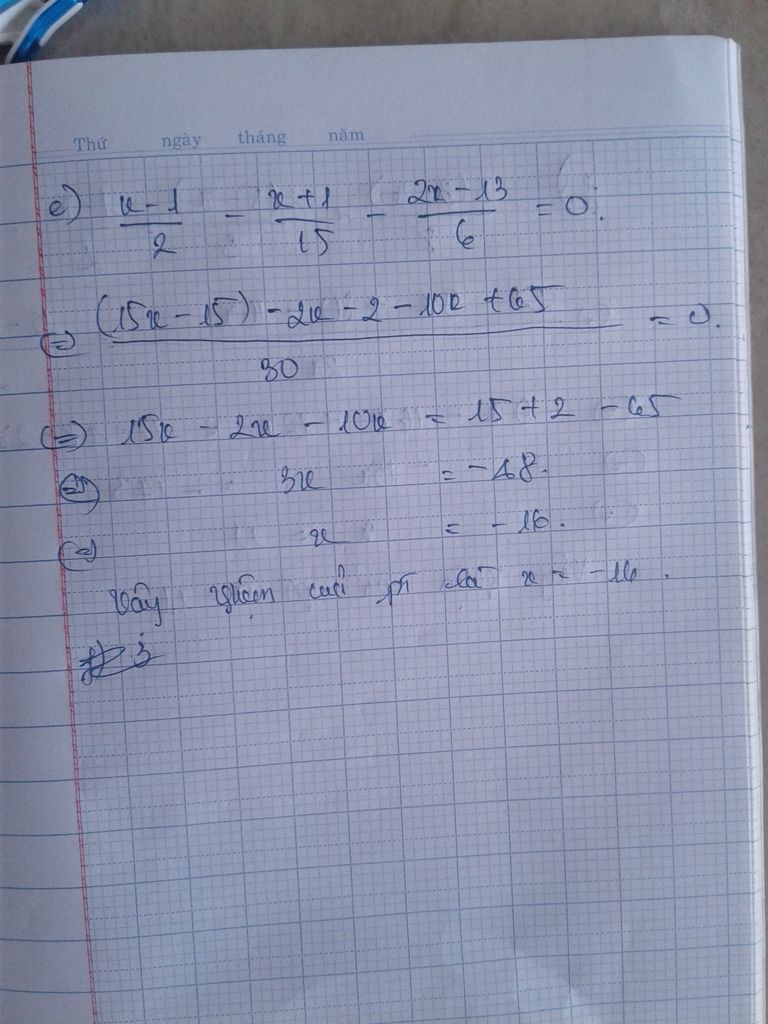 Thứ ngày tháng năm
e) x-1/2 - x+1/15 - 2x-13/6 = 0.
(=) (15x - 15) - 2x - 2 - 10x + 65/30 = 0.
(=) 15x - 2x - 10x = 15 + 2 - 65
(=) 3x = -48.
(=) x = -16.
Vậy nghiệm của pt là x = -16.